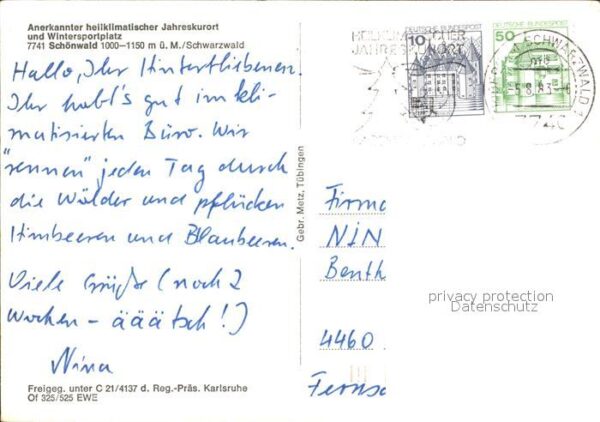 Anerkannter heilklimatischer Jahreskurort
und Wintersportplatz
7741 Schönwald 1000–1150 m ü. M./Schwarzwald
Hallo, Ihr Hinterbliebenen.
Ihr habt's gut im kli-
matisierten Büro. Wir
"rennen" jeden Tag durch
die Wälder und pflücken
Himbeeren und Blaubeeren.
Viele Grüße (noch 2
Wochen – äääätsch!)
Nina
Freigeg. unter C 21/4137 d. Reg.-Präs. Karlsruhe
Of 325/525 EWE
Gebr. Metz, Tübingen
HEILKLIMATISCHER
JAHRESKURORT
10
DEUTSCHE BUNDESPOST
50
DEUTSCHE BUNDESPOST
SCHWARZWALD 1
8.83
Firma
NIN
Benth
4460
Fernsc
privacy protection
Datenschutz